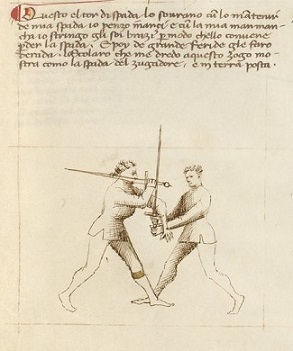 Questo el tor di spada lo sourano cū lo mātenir
de mia spada io penzo inanci e cū la mia man man
cha io stringo gli soi brazzi p modo chello conuene
pder la spada. E poy de grande feride gle faro
lo scolaro che me dredo aquesto zogo mo
stra como la spada del zugadore e in terra posta.